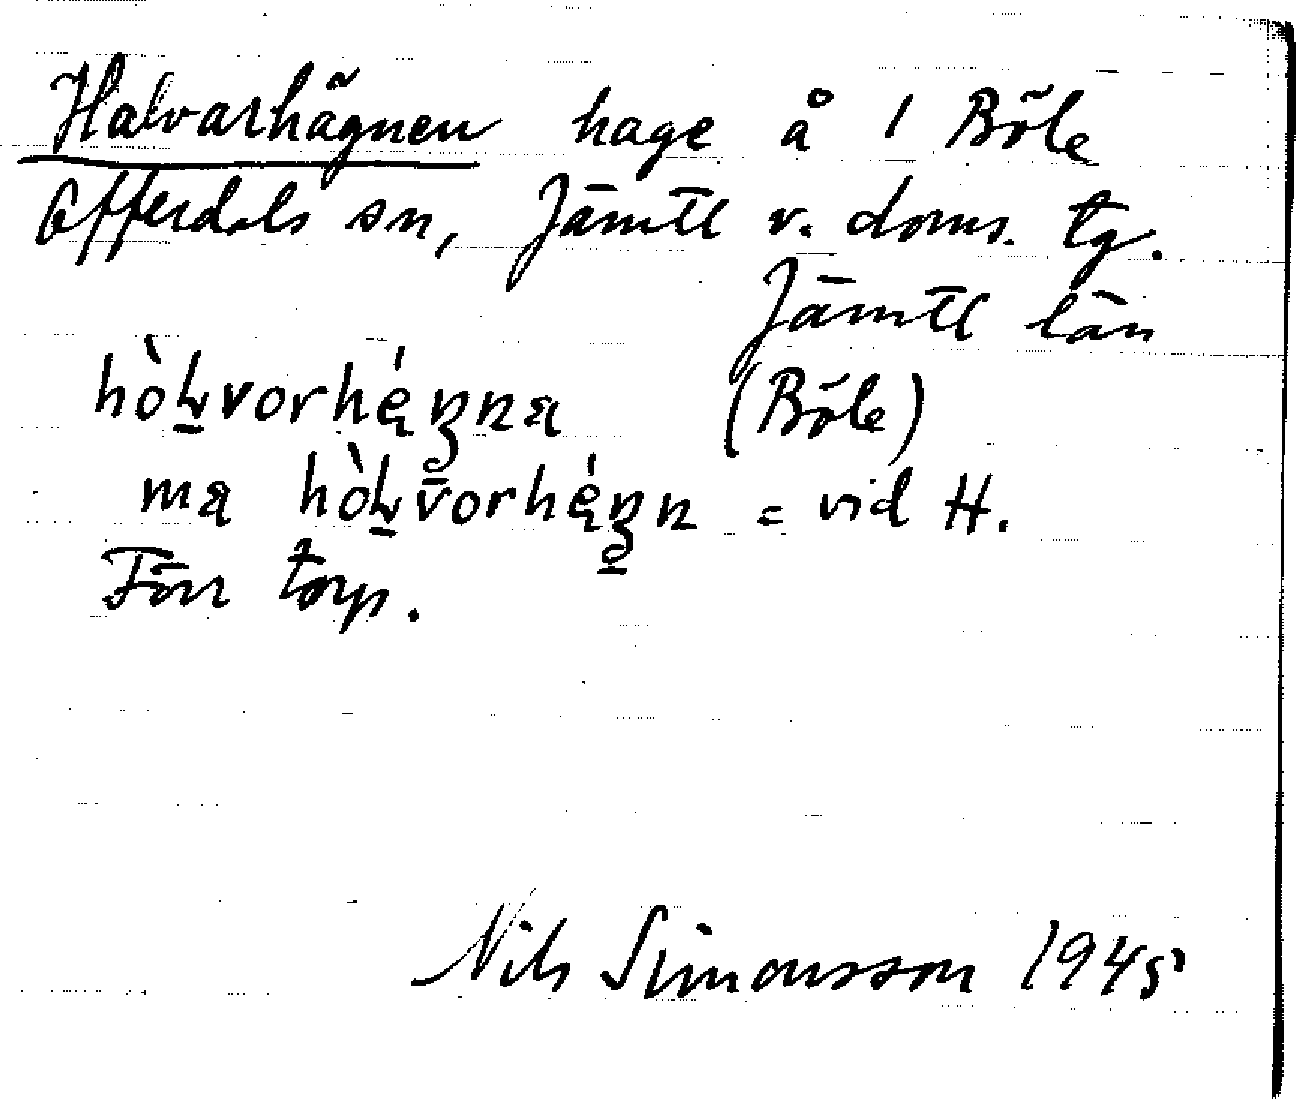 Halvarhägnen hage å 1 Böle
Offerdals sn, Jämtl v. doms. tg.
Jämtl län
hòlvorhęńna (Böle)
ma hòlvorhęńn = vid H.
Förr torp.
Nils Simonsson 1945